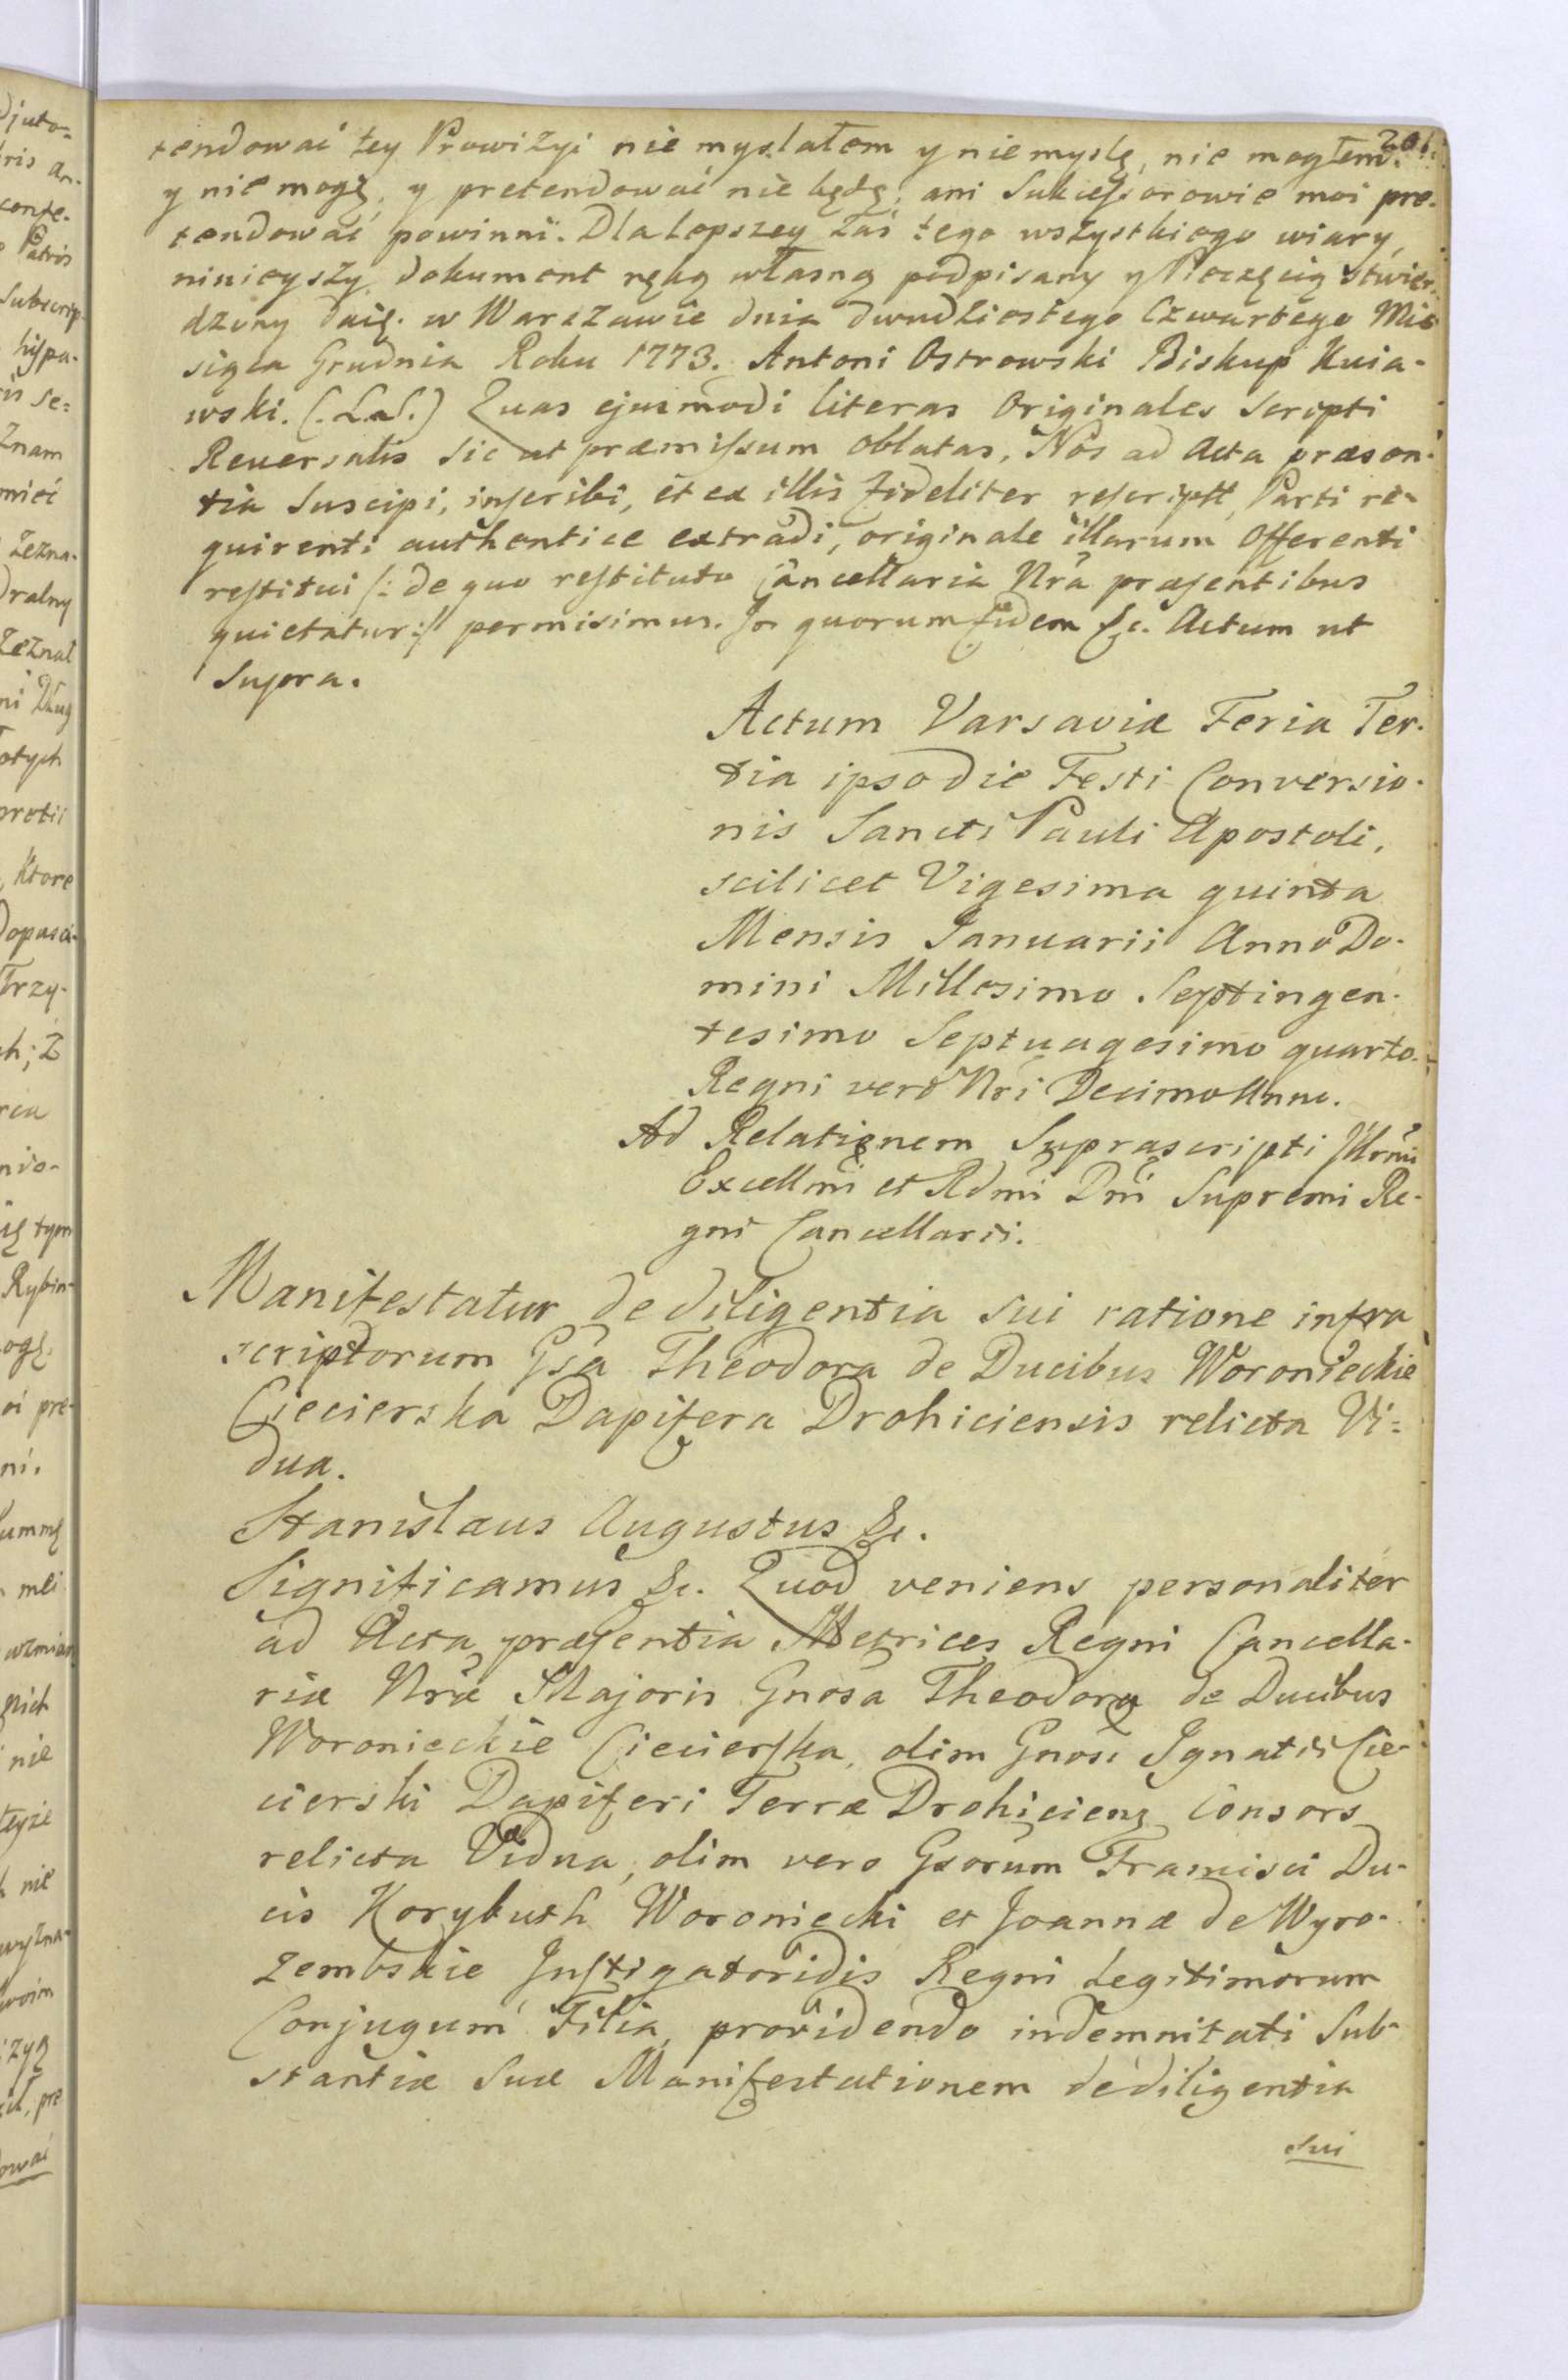 201.
tendować tey Prowizyi nie myslałem y nie myslę, nie mogłem
y nie mogę, y pretendować nie będę, ani Sukcessorowie moi pre-
tendować powinni. Dla Lepszey zaś tego wszystkiego wiary,
ninieyszy dokument ręką własną podpisany y Pieczęcią stwier-
dzony daię. w Warszawie dnia dwudziestego Czwartego Mie-
siąca Grudnia Roku 1773. Antoni Ostrowski Biskup Kuia-
wski. (.L.S.) Quas ejusmodi literas Originales Scripti
Reversalis sic ut præmissum oblatas, Nos ad Acta præsen-
tia Suscipi, inscribi, et ex illis fideliter rescriptt, Parti re-
quirenti authentice extradi, originale illarum Offerenti
restitui /: de quo restituto Cancellaria Nra præsentibus
quietatur :/ permisimus. In quorum fidem &c. Actum ut
Supra.
Actum Varsaviæ Feria Ter-
tia ipso die Festi Conversio-
nis Sancti Pauli Apostoli,
scilicet Vigesima quinta
Mensis Januarii Anno Do-
mini Millesimo Septingen-
tesimo Septuagesimo quarto.
Regni vero Nri Decimo Anno.
Ad Relationem Suprascripti Illrmi
Excellmi et Rdmi Dni Supremi Re-
gni Cancellarii.
Manifestatur de diligentia sui ratione infra
scriptorum Gsa Theodora de Ducibus Woronieckie
Ciecierska Dapifera Drohiciensis relicta Vi=
dua.
Stanislaus Augustus &c.
Significamus &c. Quod veniens personaliter
ad Acta præsentia Metrices Regni Cancella-
riæ Nræ Majoris Gnosa Theodora de Ducibus
Woronieckie Ciecierska, olim Gnosi Ignatii Cie-
cierski Dapiferi Terræ Drohiciens Consors
relicta Vidua, olim vero Gsorum Francisci Du-
cis Korybuth Woroniecki et Joannæ de Wyro-
zembskie Instigatoridis Regni Legitimorum
Conjugum Filia, providendo indemnitati Sub-
stantiæ Suæ Manifestationem de diligentia
sui